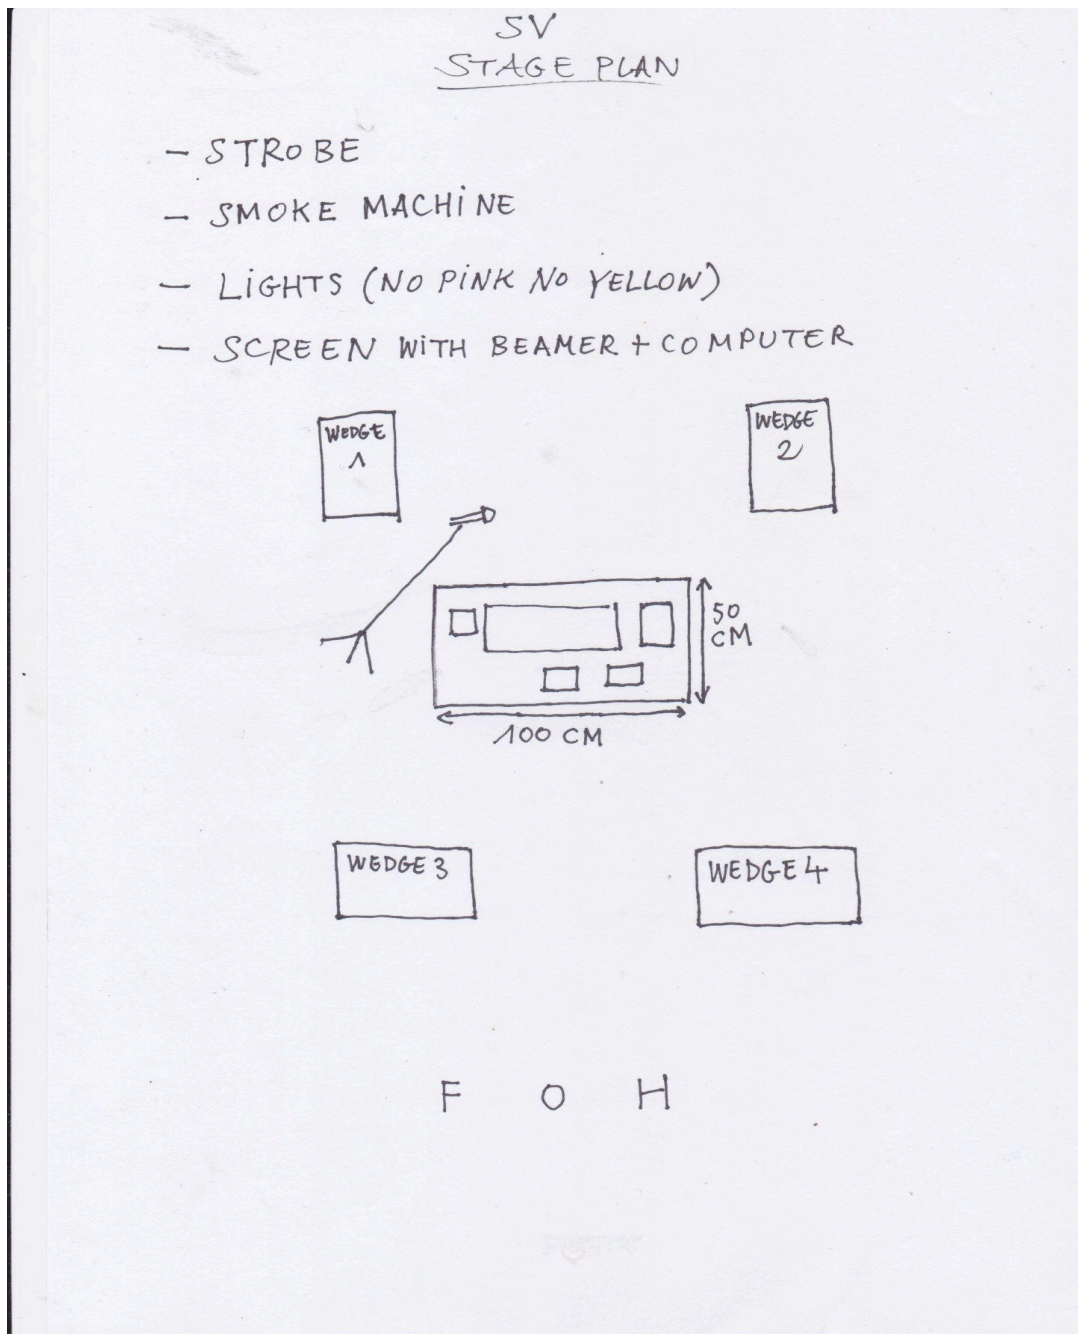 SV
STAGE PLAN
- STROBE
- SMOKE MACHINE
- LIGHTS (NO PINK NO YELLOW)
- SCREEN WITH BEAMER + COMPUTER
WEDGE
1
WEDGE
2
50
CM
100 CM
WEDGE 3
WEDGE 4
F O H